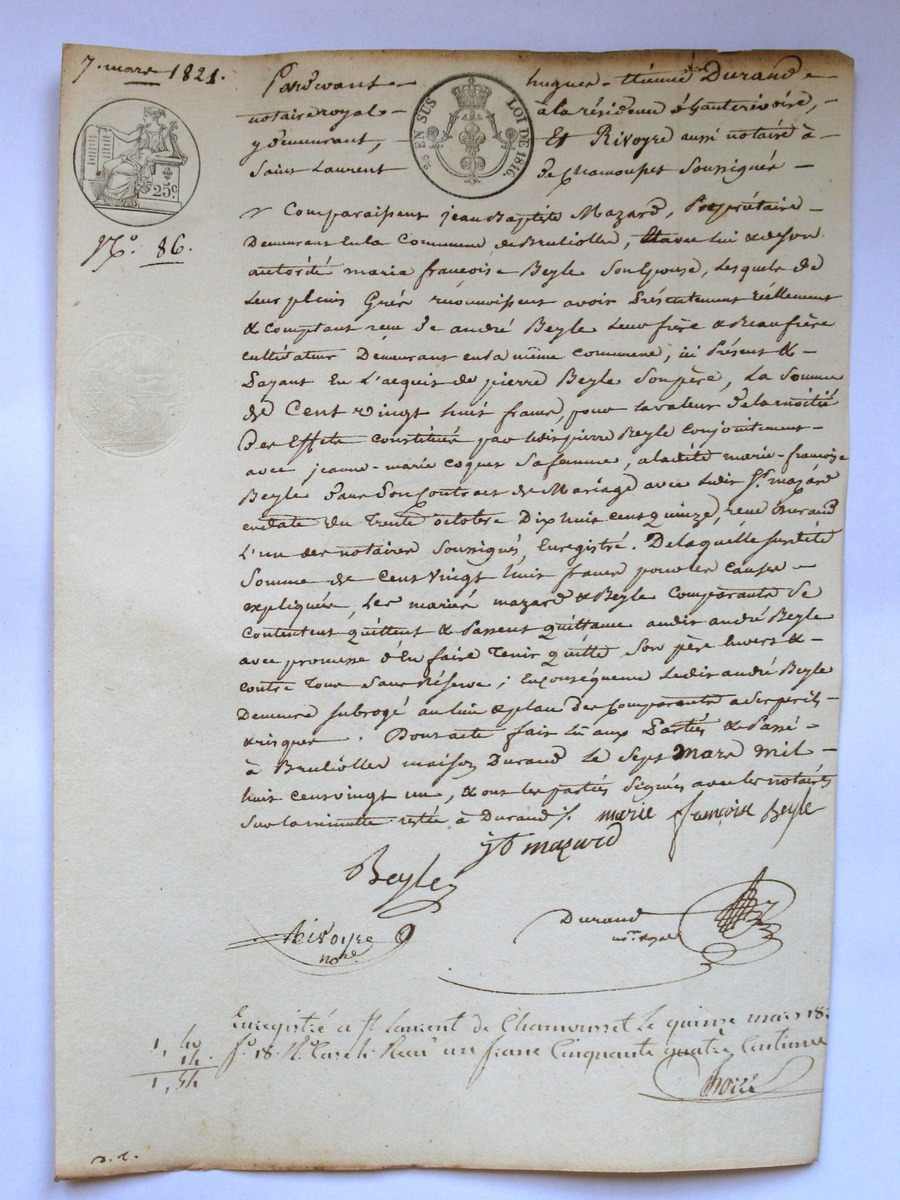 7. mars 1821.
Pardevant hugues-étienne Durand
notaire royal à la résidence d'hauterivoire,
y demeurant, Et Rivoyre aussi notaire à
Saint Laurent de Chamousset Soussignés
EN SUS LOI DE 1816.
25c.
No. 86.
Comparaissent jean Baptiste Mazard, Propriétaire
Demeurant en la Commune de Brulioller, & avec lui & de son
autorité marie françoise Beyle Son Epouse, Lesquels de
Leur pleins Grés reconnoissent avoir Présentement réellement
& comptant reçu de andré Beyle Leur frère & Beaufrère
cultivateur Demeurant en la même commune, ici Présent &
Payant En L'acquit de pierre Beyle Son père, La Somme
de Cent vingt huit francs, pour la valeur de la moitié
Des Effets constitués par ledit pierre Beyle Conjointement
avec jeanne-marie coquer Sa femme, a ladite marie-françoise
Beyle dans Son Contract de Mariage avec Ledit Sr. mazard
en date du trente octobre Dix huit cent quinze, reçu Durand
L'un des notaires Soussignés, Enregistré. De laquelle Susdite
Somme de Cent vingt huit francs pour les causes
expliquées, Les mariés mazard & Beyle Comparants Se
Contentent quittent & Passent quittance audit andré Beyle
avec promesse d'En faire tenir quitte Son père Envers &
contre Tous Sans Réserve ; En conséquence Ledit andré Beyle
Demeure Subrogé au lieu & place des Comparants a Ses périls
& risques. Dont acte fait lû aux Parties & Passé
à Brulioller maison Durand Le Sept Mars mil
huit cent vingt un, & ont les parties Signés avec les notaires
Sur la minutte restée à Durand ./. marie françoise Beyle
jb mazard
Beyle
Rivoyre
nore.
Durand
nre. royal
Enregistré a St Laurent de Chamousset Le quinze mars 18
fo. 18 Ro. Case Recu un franc Cinquante quatre Centimes
1, 40
14.
1, 54